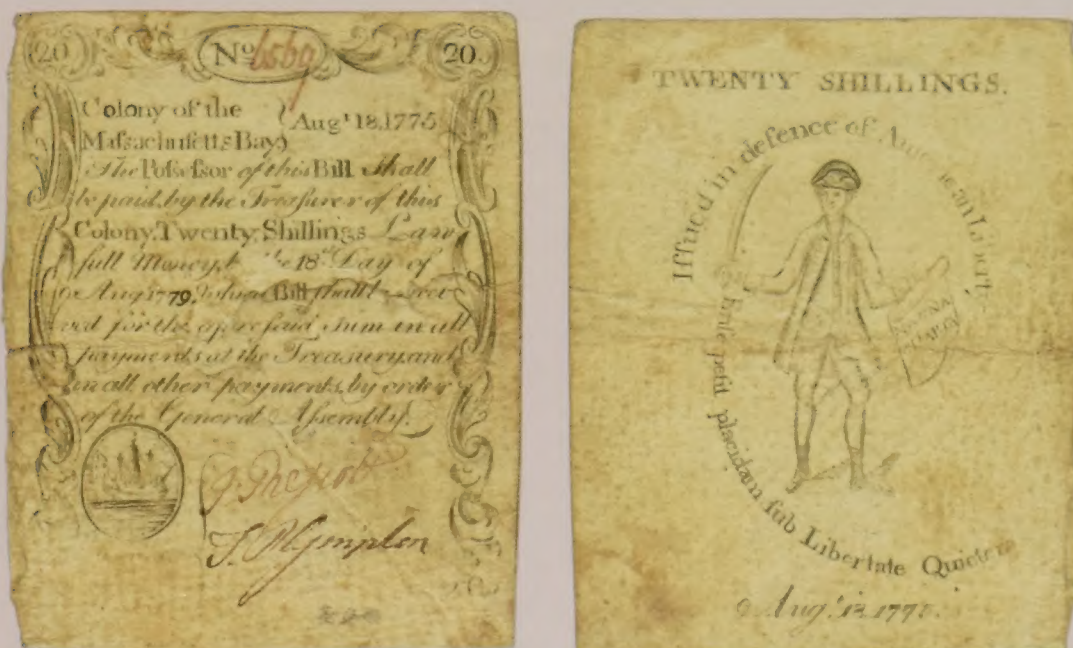 20 No 6569 20
Colony of the
Maſsachuſetts Bay Augt 18, 1775
The Poſseſsor of this Bill Shall
be paid, by the Treaſurer of this
Colony, Twenty Shillings Law
full Money, 18th Day of
Aug. 1779. which Bill ſhall be recei
ved for the aforeſaid ſum in all
payments at the Treasury, and
in all other payments, by order
of the General Aſsembly.
TWENTY SHILLINGS.
Iſſued in defence of American Liberty
Enſe petit placidam ſub Libertate Quietem
MAGNA
CHARTA
Augt. 18. 1775.